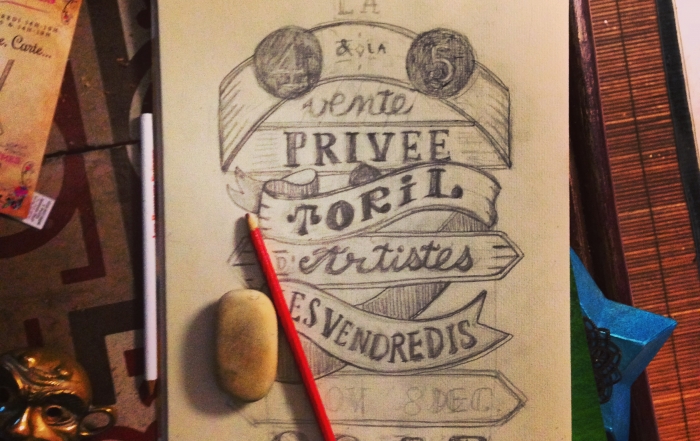 LA
4 & LA 5
vente
PRIVEE
TORIL
D'Artistes
LES VENDREDIS
8 DEC.
, Carte...